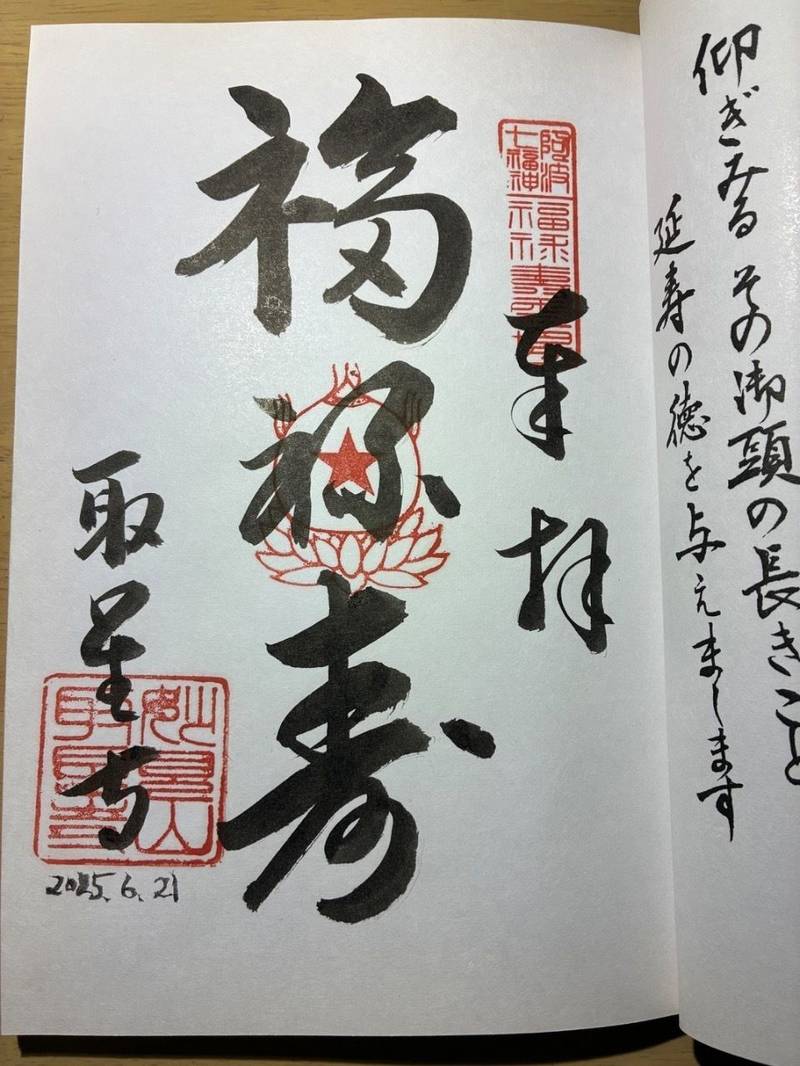 仰ぎみる その御頭の長きこと
延寿の徳を与えまします
奉拝
阿波
七福神
福禄寿
取星寺
妙見山
取星寺
2025.6.21